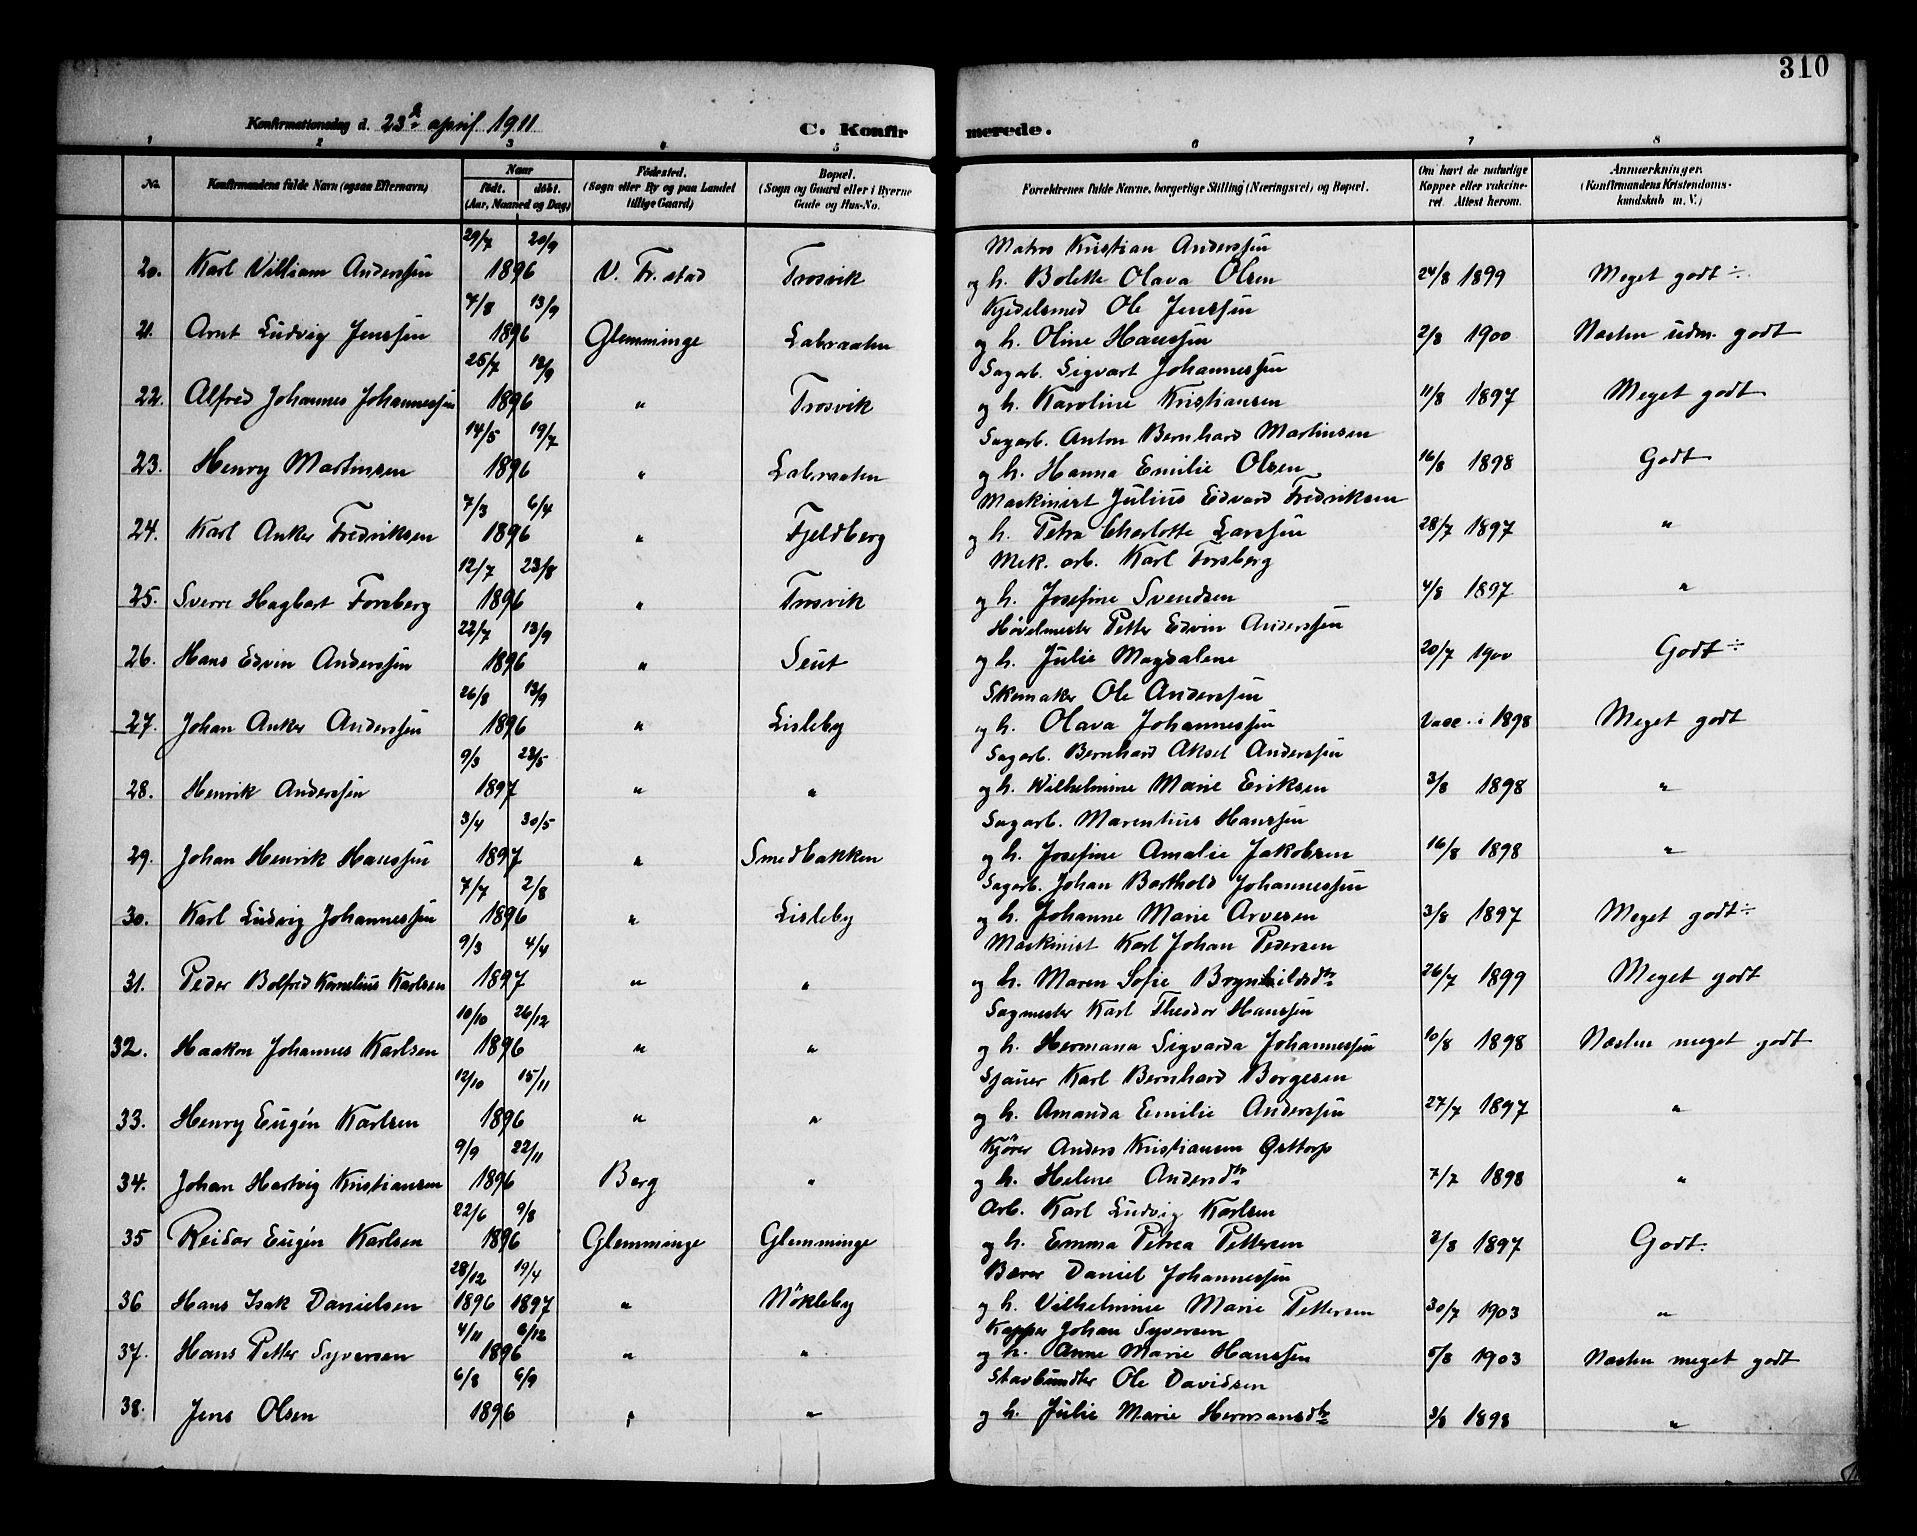 310
Konfirmationsdag d. 23d april 1911
C. Konfirmerede.
1 2 3 4 5 6 7 8
No. Konfirmandens fulde Navn (ogsaa Efternavn) Naar født. døbt. (Aar, Maaned og Dag) Fødested. (Sogn eller By og paa Landet tillige Gaard) Bopæl. (Sogn og Gaard eller i Byerne Gade og Hus-No. Forældrenes fulde Navne, borgerlige Stilling (Næringsvei) og Bopæl. Om havt de naturlige Kopper eller vakcineret. Attest herom. Anmærkninger. (Konfirmandens Kristendomskundskab m. V.)
29/7 20/9 Matros Kristian Anderssen
20. Karl Villiam Anderssen 1896 V. Fr.stad Trosvik og h. Bolette Olava Olsen 24/8 1899 Meget godt ÷
7/8 13/9 Kjedelsmed Ole Jenssen
21. Arnt Ludvig Jenssen 1896 Glemminge Labraaten og h. Oline Hanssen 2/8 1900 Næsten udm. godt
25/7 13/9 Sagarb. Sigvart Johannessen
22. Alfred Johannes Johannessen 1896 " Trosvik og h. Karoline Kristiansen 11/8 1897 Meget godt
14/5 19/7 Sagarb. Anton Bernhard Martinsen
23. Henry Martinsen 1896 " Labraaten og h. Hanna Emilie Olsen 16/8 1898 Godt
7/3 6/4 Maskinist Julius Edvard Fredriksen
24. Karl Anker Fredriksen 1896 " Fjeldberg og h. Petra Charlotte Larssen 28/7 1897 "
12/7 23/8 Mek. arb. Karl Forsberg
25. Sverre Hagbart Forsberg 1896 " Trosvik og h. Josefine Svendsen 4/8 1897 "
22/7 13/9 Høvelmester Petter Edvin Anderssen
26. Hans Edvin Anderssen 1896 " Seut og h. Julie Magdalene 20/7 1900 Godt ÷
26/8 13/9 Skomaker Ole Anderssen
27. Johan Anker Anderssen 1896 " Lisleby og h. Olava Johannessen Vacc. i 1898 Meget godt
9/3 23/5 Sagarb. Bernhard Aksel Anderssen
28. Henrik Anderssen 1897 " " og h. Wilhelmine Marie Eriksen 3/8 1898 "
3/4 30/5 Sagarb. Marentius Hanssen
29. Johan Henrik Hanssen 1897 " Smedbakken og h. Josefine Amalie Jakobsen 16/8 1898 "
7/7 2/8 Sagarb. Johan Barthold Johannessen
30. Karl Ludvig Johannessen 1896 " Lisleby og h. Johanne Marie Arvesen 3/8 1897 Meget godt ÷
9/3 4/4 Maskinist Karl Johan Pedersen
31. Peder Bolfred Kornelius Karlsen 1897 " " og h. Maren Sofie Brynhildsdtr 26/7 1899 Meget godt
10/10 26/12 Sagmester Karl Theodor Hanssen
32. Haakon Johannes Karlsen 1896 " " og h. Hermana Sigvarda Johannessen 10/8 1898 Næsten meget godt
12/10 15/11 Sjauer Karl Bernhard Borgesen
33. Henry Eugén Karlsen 1896 " " og h. Amanda Emilie Anderssen 27/7 1897 "
9/9 22/11 Kjører Anders Kristiansen Østtorp
34. Johan Hartvig Kristiansen 1896 Berg " og h. Helene Andersdtr 7/7 1898 "
22/6 9/8 Arb. Karl Ludvig Karlsen
35 Reidar Eugén Karlsen 1896 Glemminge Glemminge og h. Emma Petrea Pettersen 2/8 1897 Godt.
28/12 19/4 Bærer Daniel Johannessen
36 Hans Isak Danielsen 1896 1897 " Nökleby og h. Vilhelmine Marie Pettersen 30/7 1903 "
4/11 6/12 Kapper Johan Syversen
37. Hans Petter Syversen 1896 " " og h. Anne Marie Hanssen 5/8 1903 Næsten meget godt
6/8 6/9 Stavbundter Ole Davidsen
38. Jens Olsen 1896 " " og h. Julie Marie Hermansdtr 3/8 1898 "